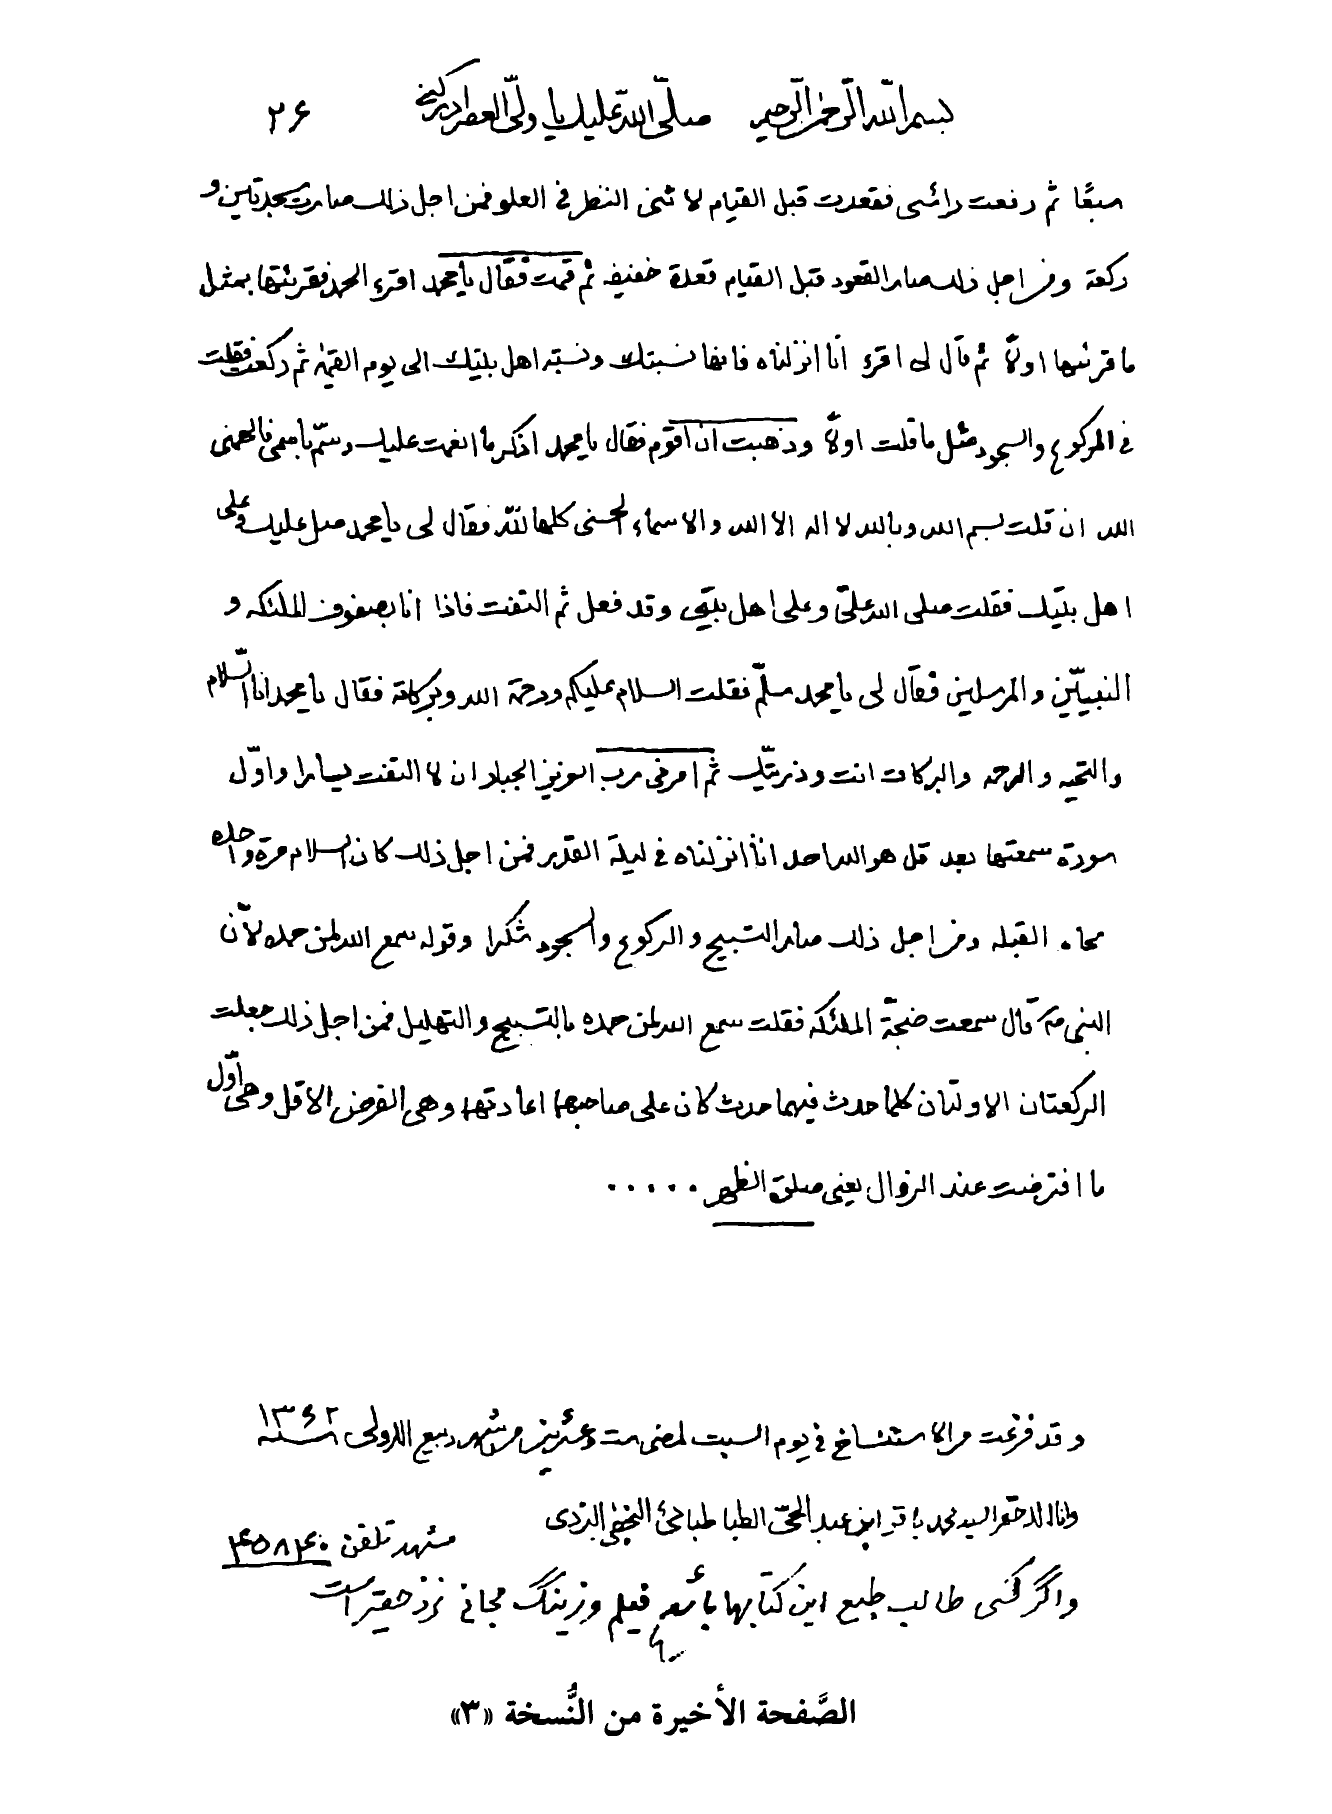 بسم الله الرّحمن الرّحيم صلّى الله عليك يا ولىّ العصر ادركنى ٢۶
سبعًا ثم رفعت رائسى فقعدت قبل القيام لا ثنى النظر فى العلو فمن اجل ذلك صارت سجدتين و
ركعة ومن اجل ذلك صار القعود قبل القيام قعدة خفيفه ثم قمت فقال يا محمد اقرء الحمد فقرئتها بمثل
ما قرئتها اولاً ثم قال لى اقرء انا انزلناه فانها نسبتك ونسبة اهل بيتك الى يوم القيمة ثم ركعت فقلت
فى الركوع والسجود مثل ما قلت اولاً وذهبت ان اقوم فقال يا محمد اذكر ما انعمت عليك وسمّ باسمى فالهمنى
الله ان قلت بسم الله وبالله لا اله الا الله والاسماء الحسنى كلها لله فقال لى يا محمد صل عليك وعلى
اهل بيتك فقلت صلى الله علىّ وعلى اهل بيتى وقد فعل ثم التفت فاذا انا بصفوف الملئكه و
النبييّن والمرسلين فقال لى يا محمد سلّم فقلت السلام عليكم ورحمة الله وبركاته فقال يا محمد انا السّلام
والتحيه والرحمه والبركات انت وذريتك ثم امرنى رب العزيز الجبار ان لا التفت يسارا واوّل
سورة سمعتها بعد قل هو الله احد انا انزلناه فى ليلة القدر فمن اجل ذلك كان السلام مرة واحده
تجاه القبله ومن اجل ذلك صار التسبيح والركوع والسجود شكرا وقوله سمع الله لمن حمده لانّ
النبى ص قال سمعت ضجّة الملئكة فقلت سمع الله لمن حمده بالتسبيح والتهليل فمن اجل ذلك جعلت
الركعتان الاولتان كلما حدث فيهما حدث كان على صاحبهما اعادتها وهى الفرض الاقل وهى اوّل
ما افترضت عند الزوال يعنى صلوة الظهر .....
وقد فرغت من الاستنساخ فى يوم السبت لمضى ست وعشرين من شهر ربيع الاولى سنه ١٣۶٢
وانا الاحقر السيد محمد باقر ابن عبد الحىّ الطباطبائى النجفى اليزدى
مشهد تلفن
واگر كسى طالب طبع اين كتابها باشد فيلم وزينگ مجانى نزد حقير است
الصَّفحة الأخيرة من النُّسخة «٣»